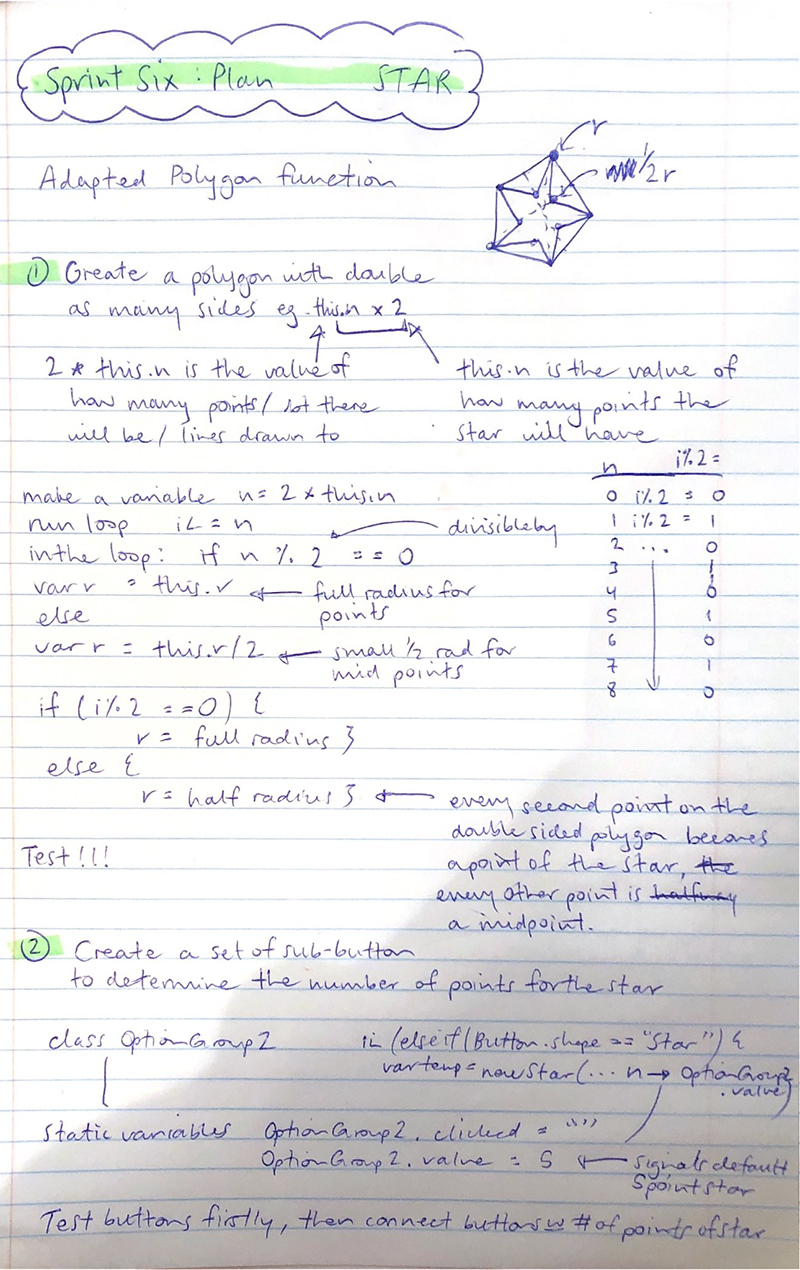 Sprint Six : Plan STAR
Adapted Polygon function
r
1/2 r
① Create a polygon with double
as many sides eg. this.n x 2
2 * this.n is the value of
how many points / lot there
will be / lines drawn to
this.n is the value of
how many points the
star will have
make a variable n = 2 * this.n
run loop i <= n
in the loop: if n % 2 == 0
divisible by
var r = this.r ← full radius for
points
else
var r = this.r/2 ← small 1/2 rad for
mid points
n i%2 =
0 i%2 = 0
1 i%2 = 1
2 ... 0
3 1
4 0
5 1
6 0
7 1
8 0
if (i%2 ==0) {
r = full radius }
else {
r = half radius } ← every second point on the
double sided polygon becomes
a point of the star, the
every other point is halfway
a midpoint.
Test!!!
② Create a set of sub-button
to determine the number of points for the star
class OptionGroup2
in (else if (Button.shape == "Star") {
var temp = new Star(... n → OptionGroup2
.value)
Static variables OptionGroup2.clicked = ""
OptionGroup2.value = 5 ← signals default
5 point star
Test buttons firstly, then connect buttons w # of points of star